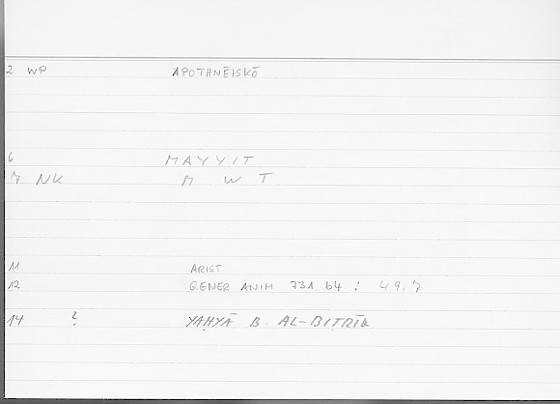 2 WP APOTHNĒISKŌ
6 MAYYIT
7 NK M W T
11 ARIST
12 GENER ANIM 731 b4 : 49.7
14 ? YAḤYĀ B. AL-BIṬRĪQ